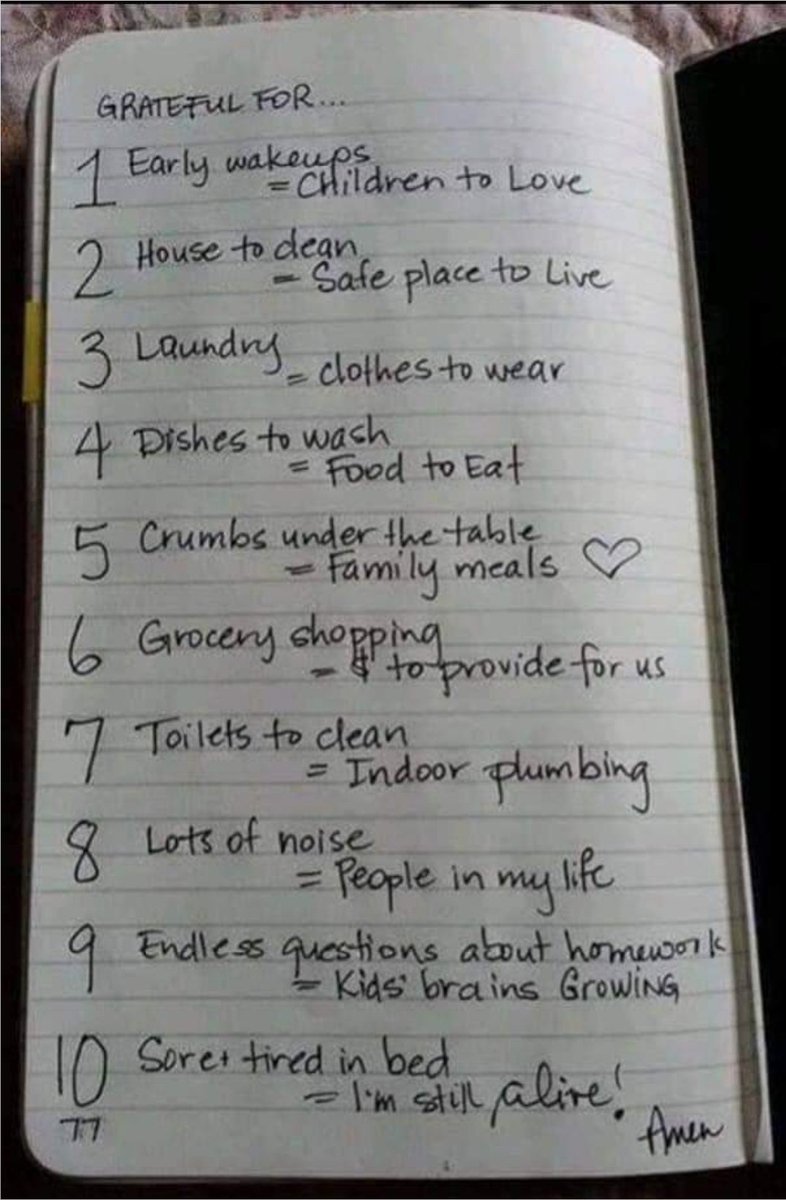 GRATEFUL FOR...
1 Early wakeups
= Children to Love
2 House to clean
- Safe place to Live
3 Laundry
= clothes to wear
4 Dishes to wash
= Food to Eat
5 Crumbs under the table
= Family meals ♡
6 Grocery shopping
- $ to provide for us
7 Toilets to clean
= Indoor plumbing
8 Lots of noise
= People in my life
9 Endless questions about homework
= Kids' brains GROWING
10 Sore + tired in bed
= I'm still alive!
77
Amen